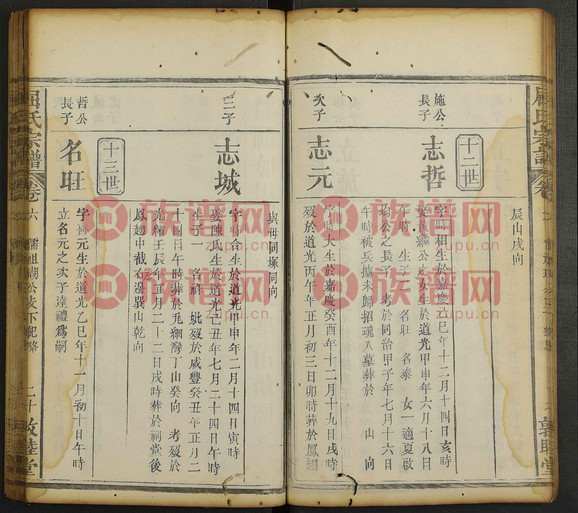 辰山戌向
十二世
施公
長子
志哲
字
相生於嘉慶
己巳年十二月十四日亥時
女生於道光甲申年六月十八日
時 生子二 名旺 名泰 女一適夏敬
均公之長子 考歿於同治甲子年七月十六日
午時被兵擄未歸招魂入墓葬於 山向
次子
志元
大生於嘉慶癸酉年十二月十九日戌時
歿於道光丙午年正月初三日卯時葬於鳳
與世同塚同向
三子
志城
生於道光甲申年二月十四日寅時
陳氏生於道光乙未年七月二十四日午時
生子一 名
妣歿於咸豐癸丑年正月二
十四日午時葬於
灣丁山癸向 考歿於
光緒壬辰年正月二十二日戌時葬於祠堂後
鳳趐中截右邊巽山乾向
十三世
哲公
長子
名旺
字
元生於道光乙巳年十一月初十日午時
立名元之次子達禮為嗣
屈氏宗譜
卷六
二十
敦睦堂
族谱网
zupu.cn
族谱网
zupu.cn